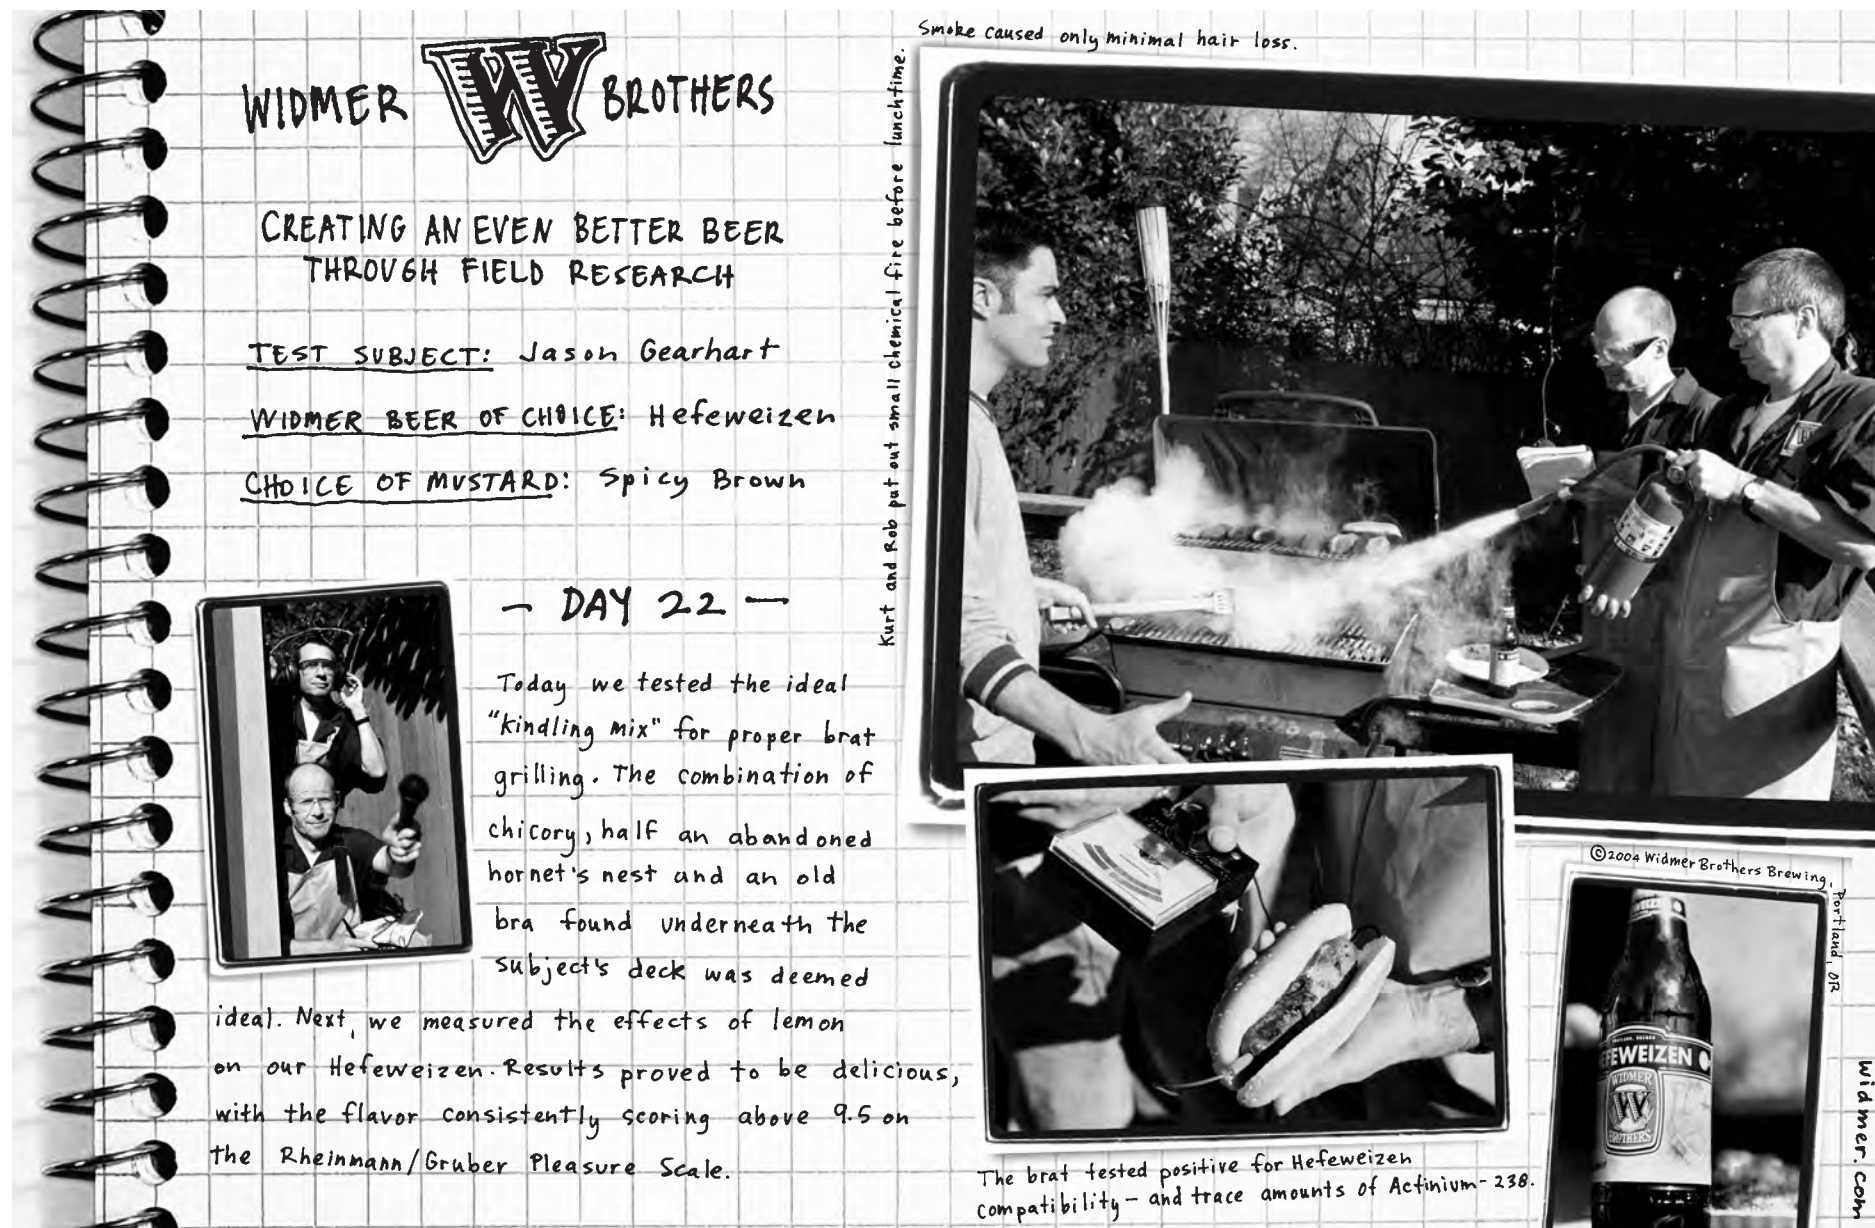 WIDMER W BROTHERS
CREATING AN EVEN BETTER BEER
THROUGH FIELD RESEARCH
TEST SUBJECT: Jason Gearhart
WIDMER BEER OF CHOICE: Hefeweizen
CHOICE OF MUSTARD: Spicy Brown
- DAY 22 -
Today we tested the ideal
"kindling mix" for proper brat
grilling. The combination of
chicory, half an abandoned
hornet's nest and an old
bra found underneath the
subject's deck was deemed
ideal. Next, we measured the effects of lemon
on our Hefeweizen. Results proved to be delicious,
with the flavor consistently scoring above 9.5 on
the Rheinmann/Gruber Pleasure Scale.
Kurt and Rob put out small chemical fire before lunchtime.
Smoke caused only minimal hair loss.
The brat tested positive for Hefeweizen
compatibility - and trace amounts of Actinium-238.
©2004 Widmer Brothers Brewing, Portland, OR
FEWEIZEN
WIDMER
W
BROTHERS
widmer.com